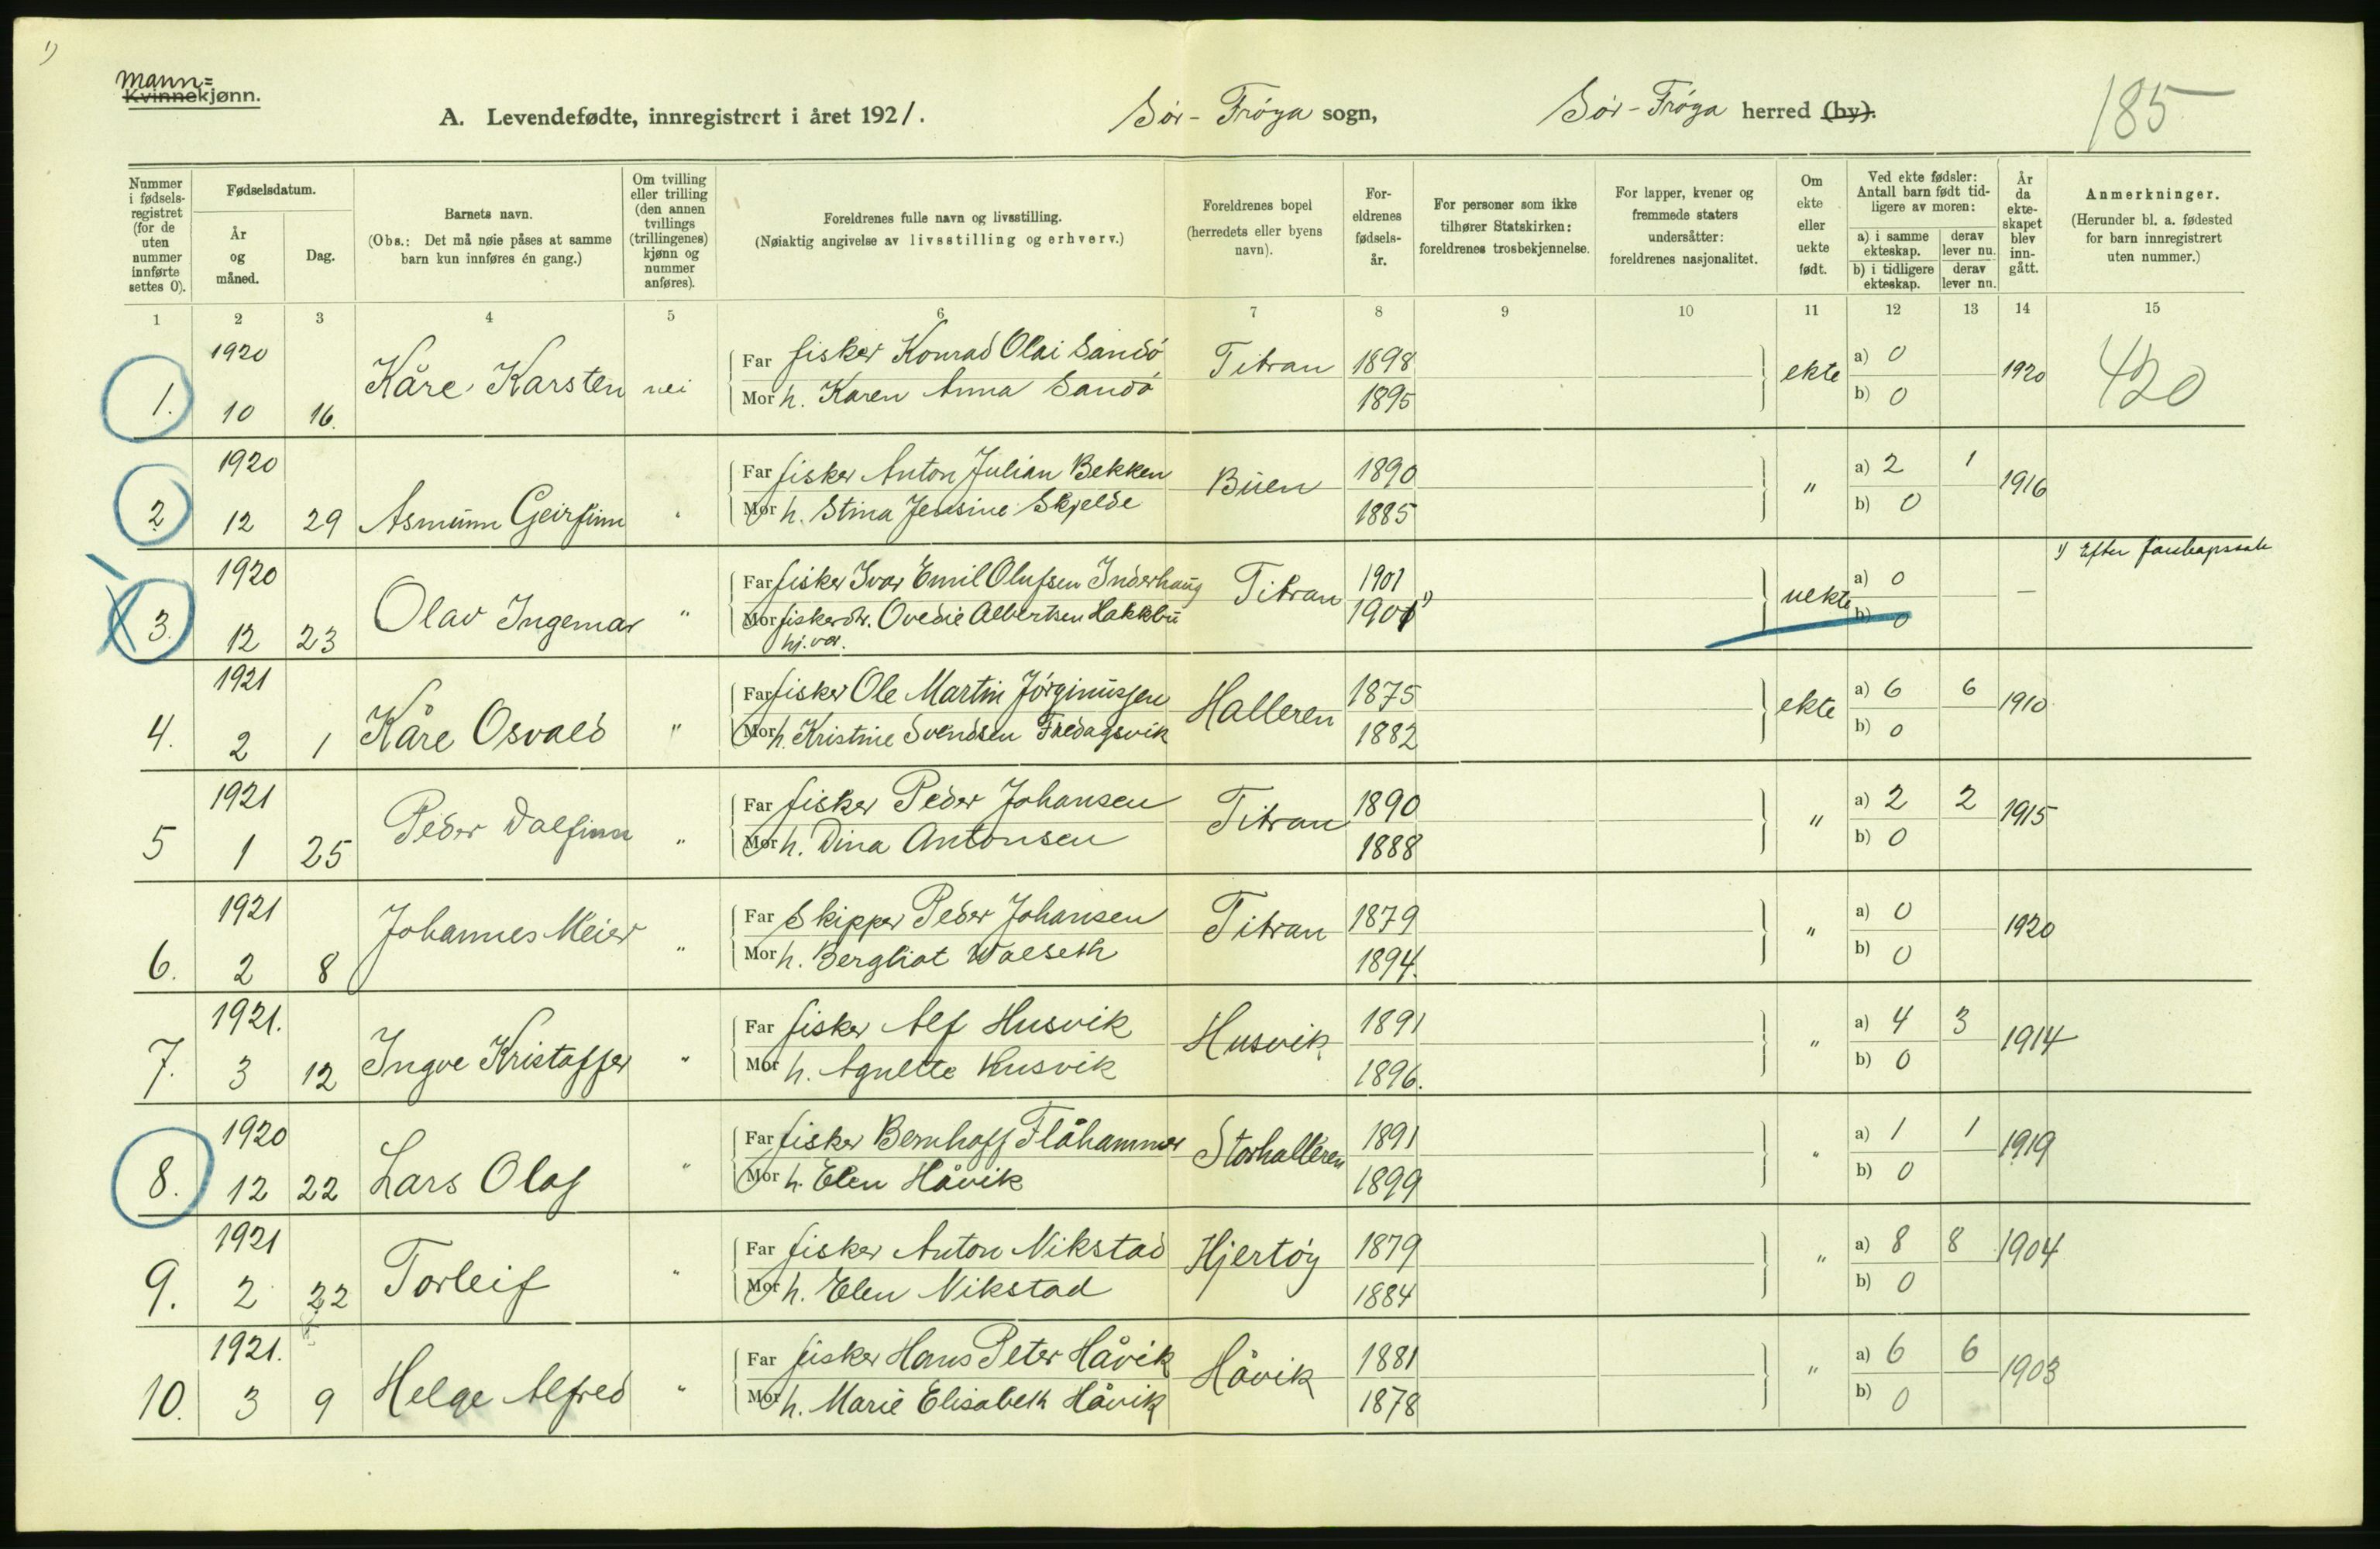 1)
Mann=
Kvinnekjønn.
A. Levendefødte, innregistrert i året 1921. Sør-Frøya sogn, Sør-Frøya herred (by). 185
Nummer i fødsels-registret (for de uten nummer innførte settes 0).
Fødselsdatum.
År og måned.
Dag.
Barnets navn.
(Obs.: Det må nøie påses at samme barn kun innføres én gang.)
Om tvilling eller trilling (den annen tvillings (trillingenes) kjønn og nummer anføres).
Foreldrenes fulle navn og livsstilling.
(Nøiaktig angivelse av livsstilling og erhverv.)
Foreldrenes bopel (herredets eller byens navn).
For-eldrenes fødsels-år.
For personer som ikke tilhører Statskirken: foreldrenes trosbekjennelse.
For lapper, kvener og fremmede staters undersåtter: foreldrenes nasjonalitet.
Om ekte eller uekte født.
Ved ekte fødsler: Antall barn født tid-ligere av moren:
a) i samme ekteskap. derav lever nu.
b) i tidligere ekteskap. derav lever nu.
År da ekte-skapet blev inn-gått.
Anmerkninger.
(Herunder bl. a. fødested for barn innregistrert uten nummer.)
1 2 3 4 5 6 7 8 9 10 11 12 13 14 15
1. 1920 10 16. Kåre Karsten nei
Far fisker Konrad Olai Sandø Titran 1898 ekte a) 0 1920 420
Mor h. Karen Anna Sandø 1895 b) 0
2 1920 12 29 Asmunn Geirfinn "
Far fisker Anton Julian Bekken Buen 1890 " a) 2 1 1916
Mor h. Stina Jensine Skjelde 1885 b) 0
3. 1920 12 23 Olav Ingemar "
Far fisker Ivar Emil Olufsen Inderhaug Titran 1901 uekte a) 0 — 1) Efter
Mor fiskerdtr. Ovedie Albertsen Hakkbu 1901 1) b) 0
hj. vær.
4. 1921 2 1 Kåre Osvald "
Far fisker Ole Martin Jørginussen Halleren 1875 ekte a) 6 6 1910
Mor h. Kristine Svendsen Fredagsvik 1882 b) 0
5 1921 1 25 Peder Dalfinn "
Far fisker Peder Johansen Titran 1890 " a) 2 2 1915
Mor h. Dina Antonsen 1888 b) 0
6. 1921 2 8 Johannes Meier "
Far Skipper Peder Johansen Titran 1879 " a) 0 1920
Mor h. Bergliot Walseth 1894. b) 0
7. 1921. 3 12 Ingve Kristoffer "
Far fisker Alf Husvik Husvik 1891 " a) 4 3 1914
Mor h. Agnette Husvik 1896. b) 0
8. 1920 12 22 Lars Olaf "
Far fisker Bernhoff Flåhammer Storhalleren 1891 " a) 1 1 1919
Mor h. Elen Håvik 1899 b) 0
9. 1921 2 22 Torleif "
Far fisker Anton Nikstad Hjertøy 1879 " a) 8 8 1904
Mor h. Elen Nikstad 1884 b) 0
10. 1921. 3 9 Helge Alfred "
Far fisker Hans Peter Håvik Håvik 1881 " a) 6 6 1903
Mor h. Marie Elisabeth Håvik 1878 b) 0